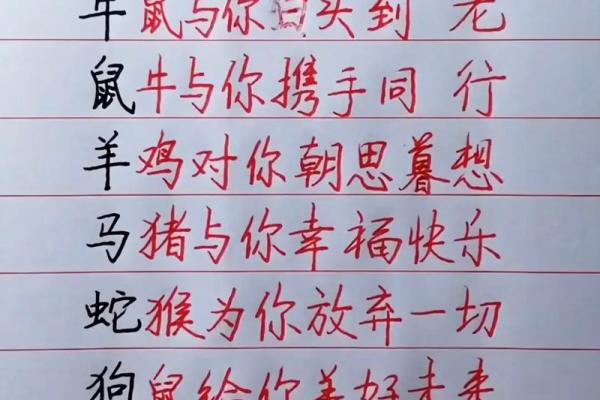 牛鼠与你白头到 老
鼠牛与你携手同 行
羊鸡对你朝思暮想
马猪与你幸福快乐
蛇猴为你放弃一切
狗鼠给你美好未来